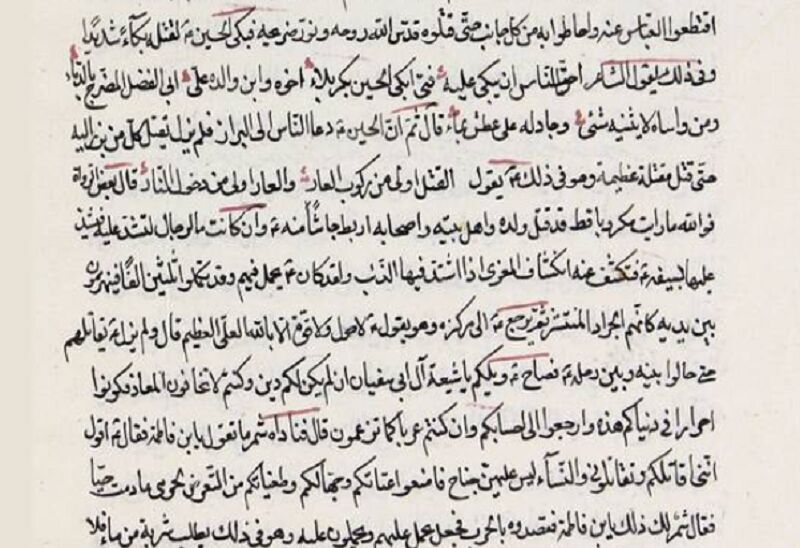 اقتطعوا العباس عنه واحاطوا به من كل جانب حتى قتلوه قدس الله روحه ونور ضريحه فبكى الحسين ع لقتله بكاء شديدا
وفى ذلك يقول الشاعر احق الناس ان يبكى عليه فتى ابكى الحسين بكربلاء اخوه وابن والده على ابو الفضل المضرج بالدماء
ومن واساه لا يثنيه شئ وجادله على عطش بماء قال ثم ان الحسين ع دعا الناس الى البراز فلم يزل يقتل كل من برز اليه
حتى قتل مقتلة عظيمة وهو فى ذلك ع يقول القتل اولى من ركوب العار والعار اولى من دخول النار قال بعض الرواة
فوالله ما رايت مكثورا قط قد قتل ولده واهل بيته واصحابه اربط جاشا منه ع وان كانت الرجال لتشد عليه فيشد
عليها بسيفه ع فتكشف عنه انكشاف المعزى اذا اشتد فيها الذئب ولقد كان ع يحمل فيهم وقد تكملوا ثلثين الفا فينهزمون
بين يديه كانهم الجراد المنتشر ثم يرجع ع الى مركزه وهو يقول ع لا حول ولا قوة الا بالله العلى العظيم قال ولم يزل ع يقاتلهم
حتى حالوا بينه وبين رحله ع فصاح ع ويلكم يا شيعة آل ابى سفيان ان لم يكن لكم دين وكنتم لا تخافون المعاد فكونوا
احرارا فى دنياكم هذه وارجعوا الى احسابكم وان كنتم عربا كما تزعمون قال فناداه شمر ما تقول يا ابن فاطمة فقال ع اقول
اننى اقاتلكم وتقاتلونى والنساء ليس عليهن جناح فامنعوا عتاتكم وجهالكم وطغياتكم من التعرض لحرمى ما دمت حيا
فقال شمر لك ذلك يا بن فاطمة فقصدوه بالحرب فجعل يحمل عليهم ويحملون عليه وهو فى ذلك يطلب شربة من ماء فلا